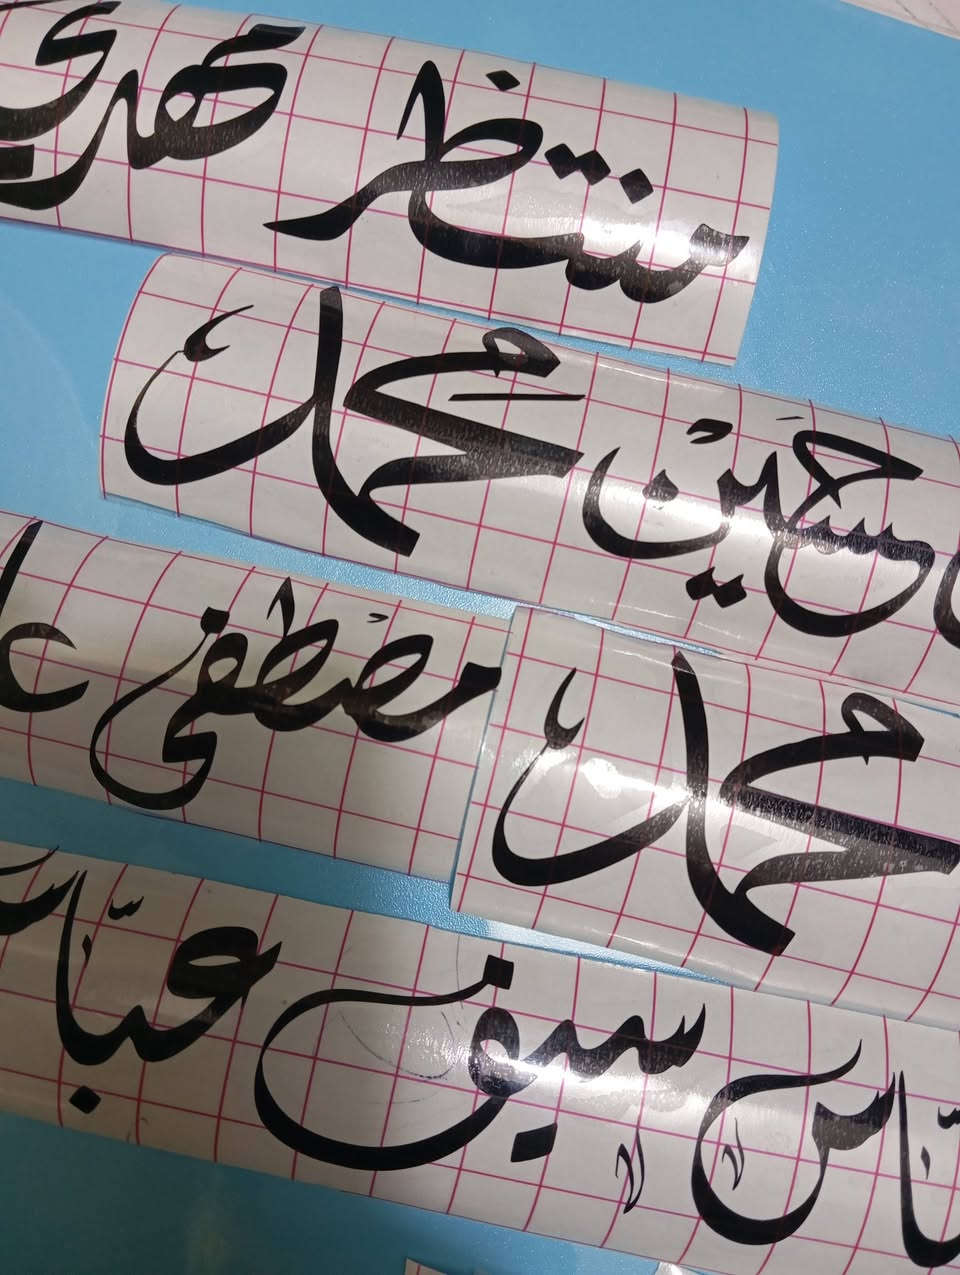 منتظر مهدي
حسين محمد
مصطفى
محمد
سيف عباس